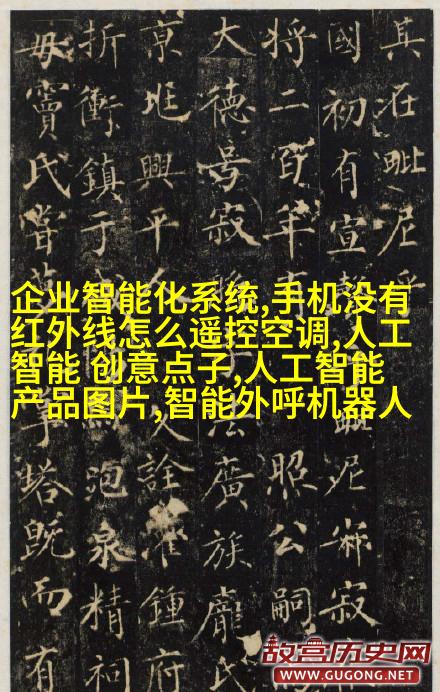 其在毗尼乎
國初有宣毗尼寂
将二百年有照公嗣
大德号寂法廣族龐氏
京兆興平人詮灌鍾府
折衝鎮于泡泉精祠
毋竇氏嘗塔既而有
企业智能化系统,手机没有
红外线怎么遥控空调,人工
智能 创意点子,人工智能
产品图片,智能外呼机器人
故宫历史网
WWW.GUGONG.NET